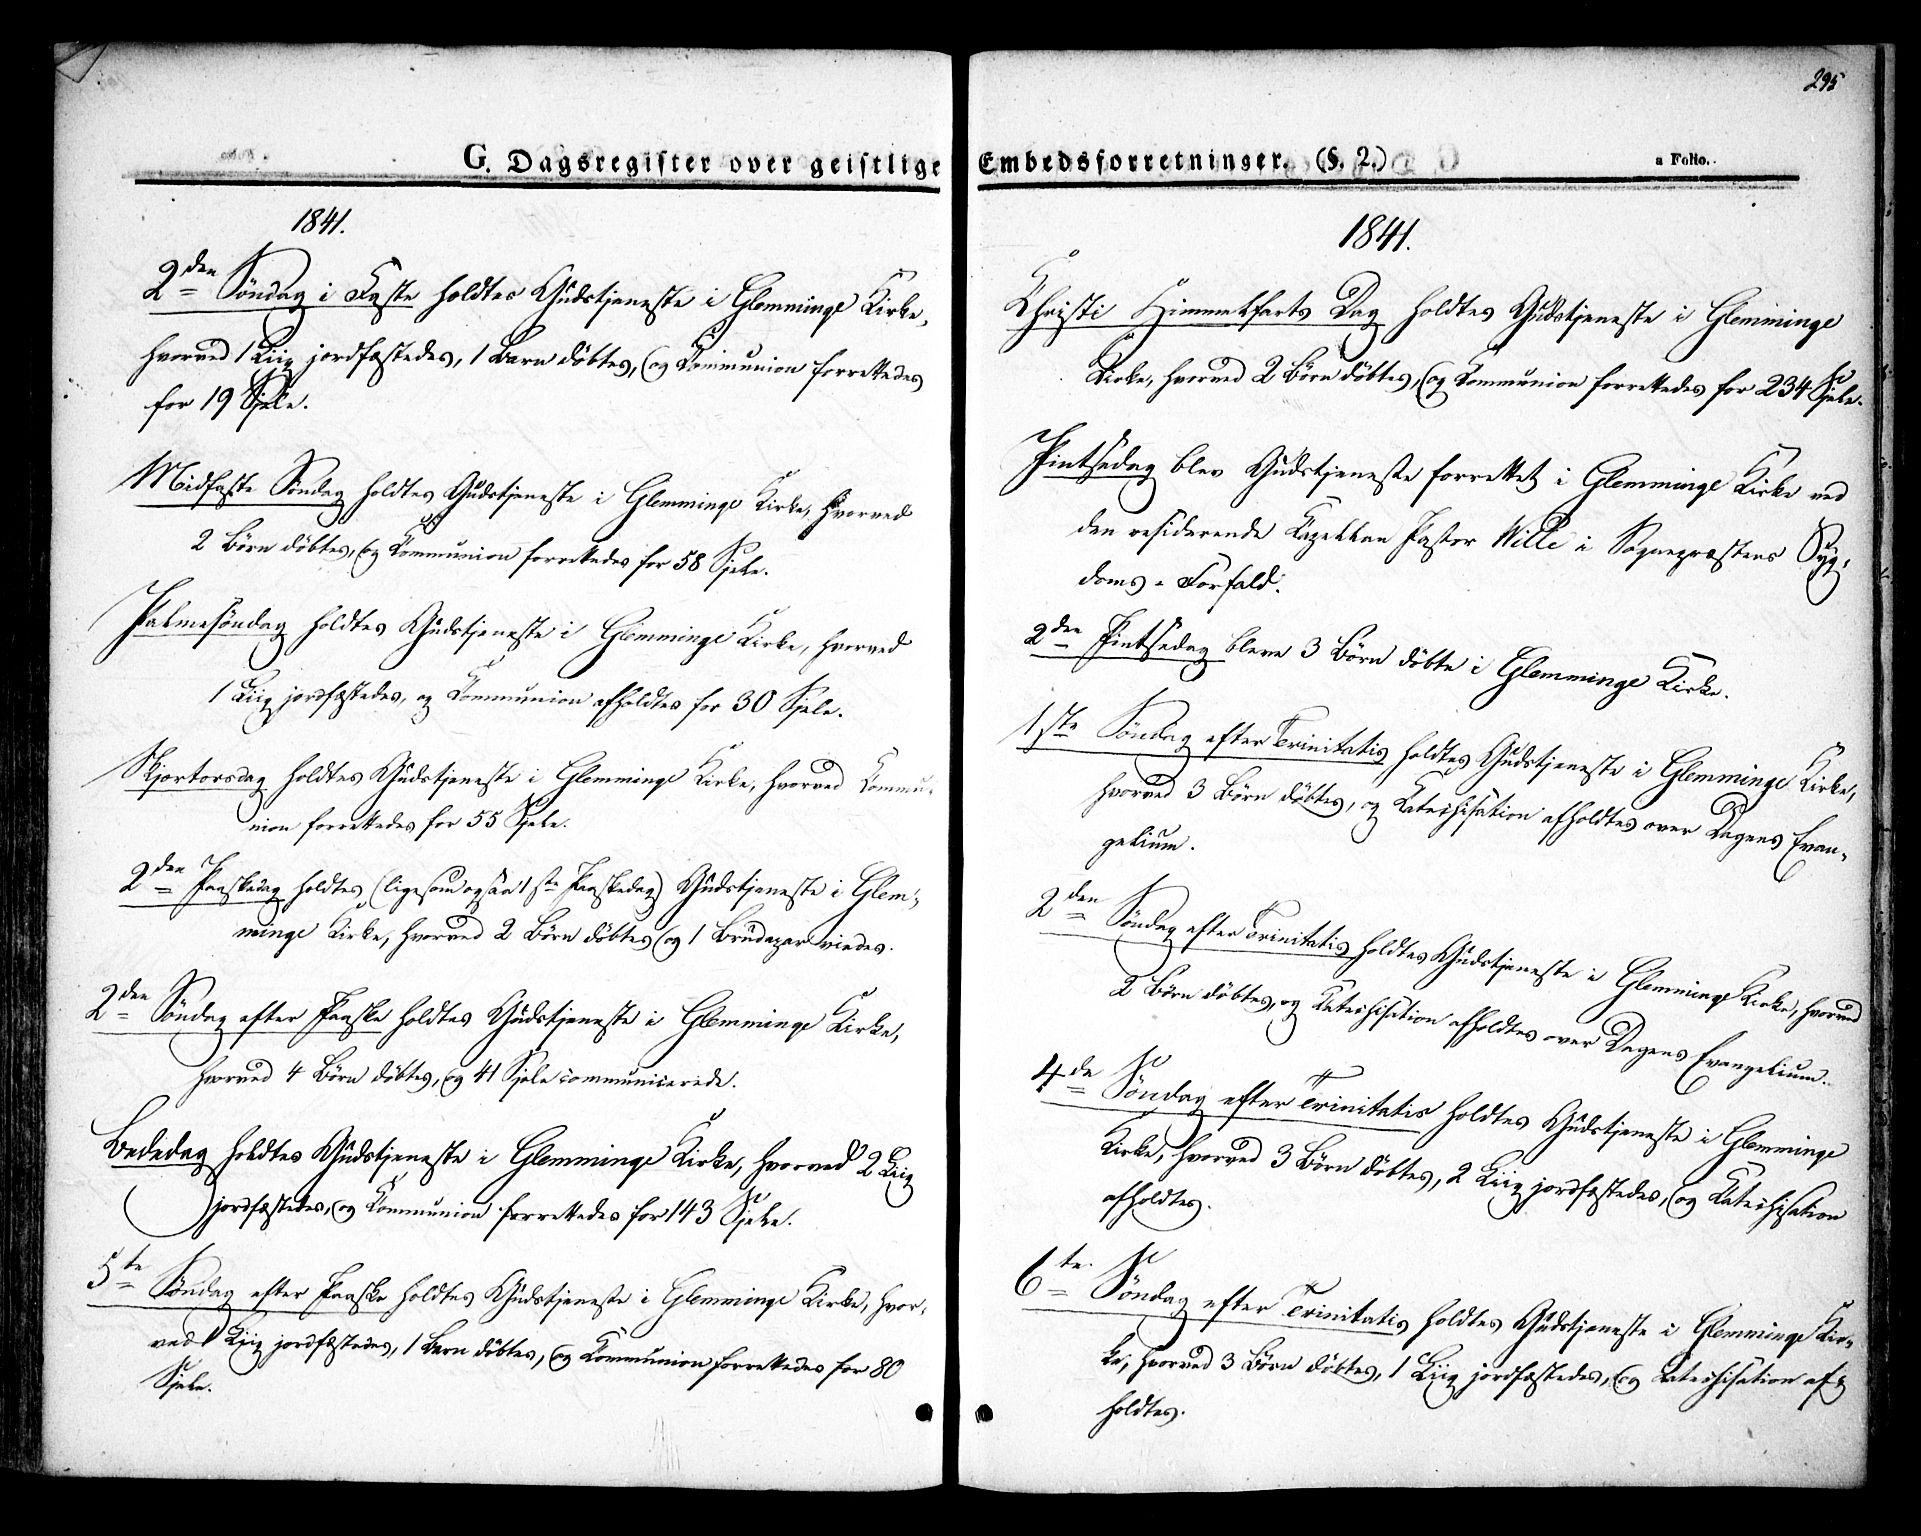 G. Dagsregister over geistlige
1841.
2den Söndag i Faste holdtes Gudstjeneste i Glemminge Kirke,
hvorved 1 Liig jordfæstedes, 1 Barn döbtes, og Communion forrettedes
for 19 Sjele.
Midfaste Söndag holdtes Gudstjeneste i Glemminge Kirke, hvorved
2 Börn döbtes, og Communion forrettedes for 58 Sjele.
Palmesöndag holdtes Gudstjeneste i Glemminge Kirke, hvorved
1 Liig jordfæstedes, og Communion afholdtes for 30 Sjele.
Skjertorsdag holdtes Gudstjeneste i Glemminge Kirke, hvorved Commu-
nion forrettedes for 55 Sjele.
2den Paaskedag holdtes (ligesom ogsaa 1ste Paaskedag) Gudstjeneste i Glem-
minge Kirke, hvorved 2 Börn döbtes og 1 Brudepar viedes.
2den Söndag efter Paaske holdtes Gudstjeneste i Glemminge Kirke,
hvorved 4 Börn döbtes, og 41 Sjele communicerede.
Bededag holdtes Gudstjeneste i Glemminge Kirke, hvorved 2 Liig
jordfæstedes, og Communion forrettedes for 143 Sjele.
5te Söndag efter Paaske holdtes Gudstjeneste i Glemminge Kirke, hvor-
ved 1 Liig jordfæstedes, 1 Barn döbtes, og Communion forrettedes for 80
Sjele.
295
Embedsforretninger. (§. 2.)
a Folio.
1841.
Christi Himmelfarts Dag holdtes Gudstjeneste i Glemminge
Kirke, hvorved 2 Börn döbtes, og Communion forrettedes for 234 Sjele.
Pintsedag blev Gudstjeneste forrettet i Glemminge Kirke ved
den residerende Capellan Pastor Wille i Sognepræstens Syg-
doms-Forfald.
2den Pintsedag bleve 3 Börn döbte i Glemminge Kirke.
1ste Söndag efter Trinitatis holdtes Gudstjeneste i Glemminge Kirke,
hvorved 3 Börn döbtes, og Catechisation afholdtes over Dagens Evan-
gelium.
2den Söndag efter Trinitatis holdtes Gudstjeneste i Glemminge Kirke, hvorved
2 Börn döbtes, og Catechisation afholdtes over Dagens Evangelium.
4de Söndag efter Trinitatis holdtes Gudstjeneste i Glemminge
Kirke, hvorved 3 Börn döbtes, 2 Liig jordfæstedes, og Catechisation
afholdtes.
6te Söndag efter Trinitatis holdtes Gudstjeneste i Glemminge Kir-
ke, hvorved 3 Börn döbtes, 1 Liig jordfæstedes, og Catechisation af-
holdtes.